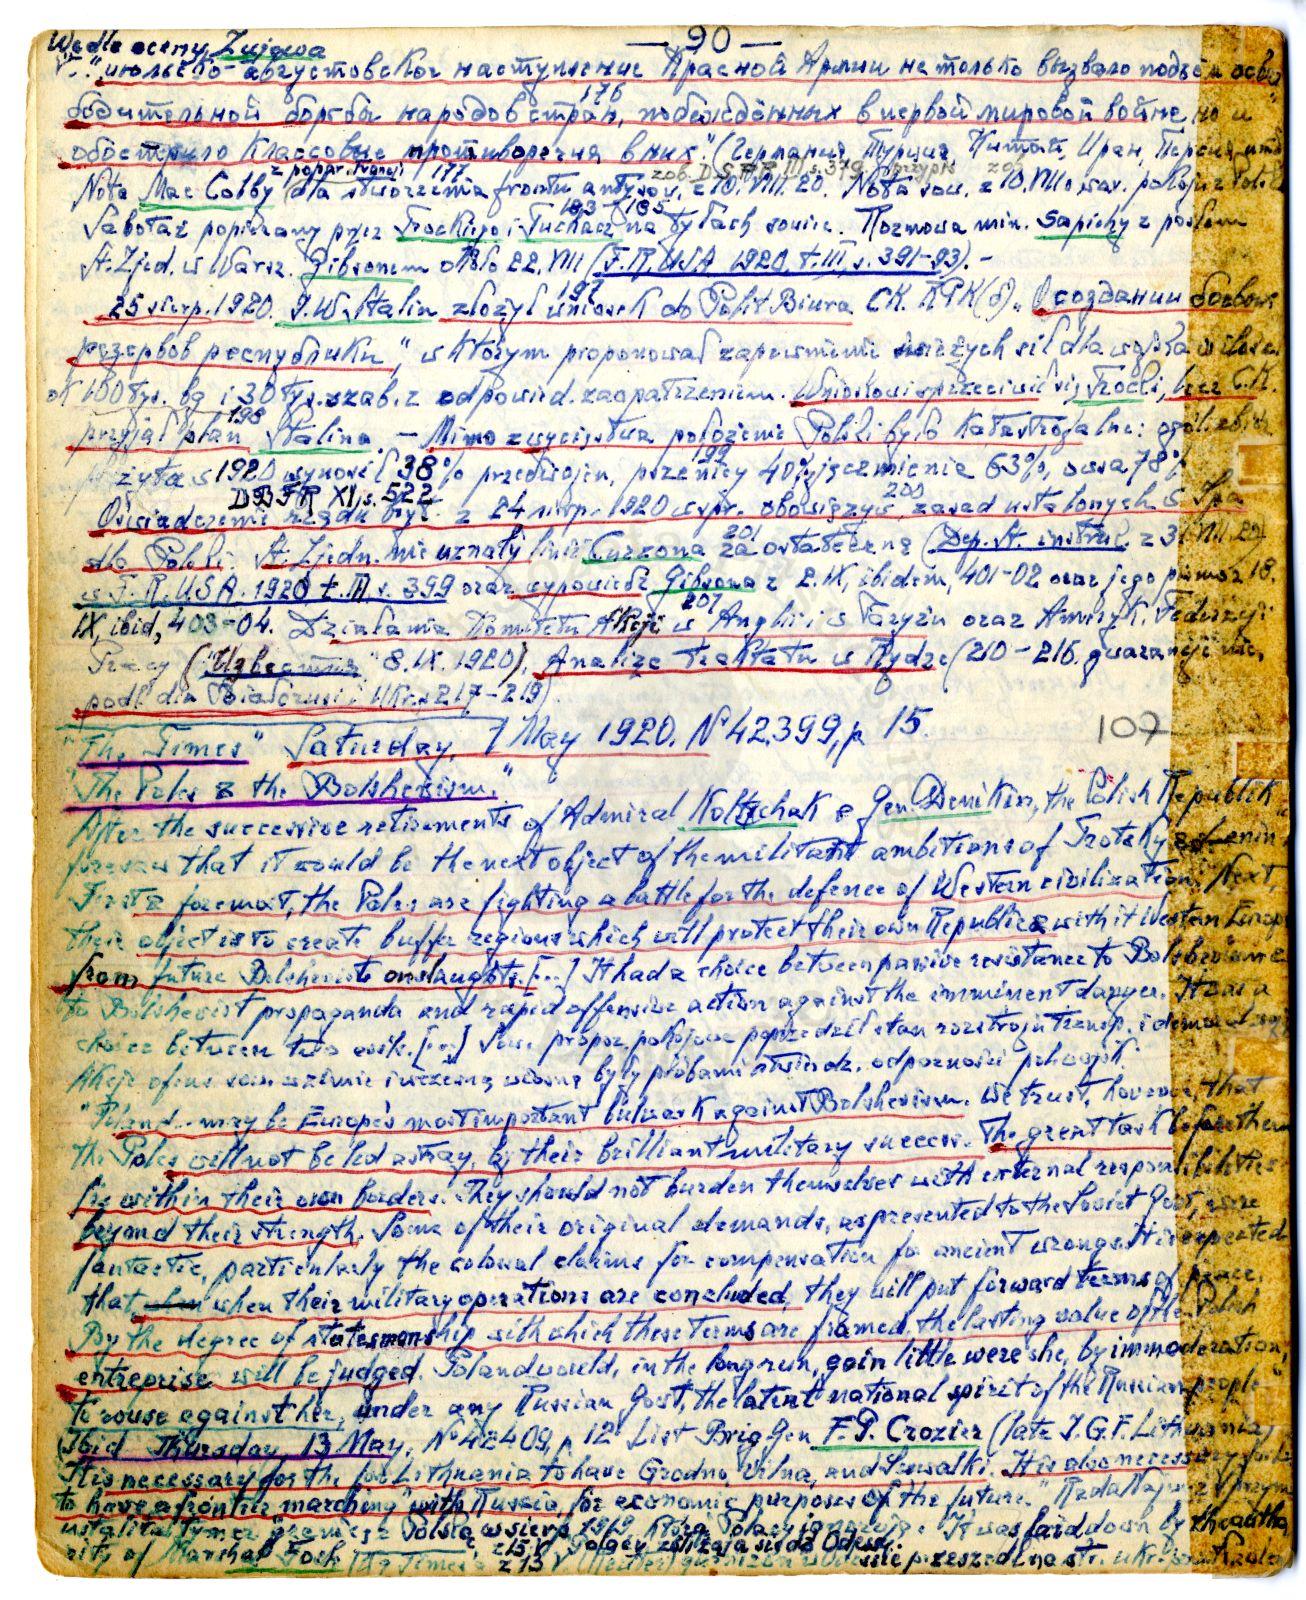 — 90 —
Wedle oceny Zujewa
"..." июльско-августовское наступление Красной Армии не только вызвало подъём осво
бодительной борьбы народов стран, побеждённых в первой мировой войне, но и
176
обострило классовые противоречия в них." (Германия, Турция, Китай, Иран,
z popar. Francji 177
Nota Mac Colby dla stworzenia frontu antysow. z 10.VIII.20. Nota sow. z 10.VIII o
183-185
Sabotaż popierany przez Trockiego i Tuchacz. na tyłach sowiec. Rozmowa min. Sapiehy z posłem
St. Zjed. w Warsz. Gibsonem około 22.VIII (F.R.USA 1920, t. III, s. 391-93). -
197
25 sierp. 1920. J.W. Stalin złożył wniosek do Polit Biura CK. RPK(b) „О создании боевых
резервов республики", w którym proponował zapewnienie świeżych sił dla wojska w ilości
ok 100 tys. bg i 30 tys. szab. z odpowied. zaopatrzeniem. Wnioskowi sprzeciwił się Trocki, lecz C.K.
przyjął plan 198 Stalina. - Mimo zwycięstwa położenie Polski było katastrofalne:
żyta w 1920 wynosił 38% przedwojen., pszenicy 40%, jęczmienia 63%, owsa 78%
199
DBFR XI, s. 522
Oświadczenie rządu bryt. z 24 sierp. 1920 w spr. obowiązyw. zasad ustalonych w Spa
200
dla Polski. St. Zjedn. nie uznały linii Curzona za ostateczną (Dep. St. instruk. z 31.VIII.20)
201
w F.R.USA. 1920 t. III, s. 399 oraz wypowiedź Gibsona z 2.IX, ibidem, 401-02 oraz jego pismo z 18.
IX, ibid, 403-04. Działania Komitetu Akcji w Anglii i w Paryżu oraz Ameryk. Federacji
207
Pracy ("Известия" 8.IX.1920). Analiza traktatu w Rydze (210-216. gwarancje
podl. dla Białorusi i Ukr. s 217-219)
"The Times" Saturday, 1 May 1920. N 42.399, p 15.
107
"The Poles & the Bolshevism."
After the successive retirements of Admiral Koltchak & Gen. Denikin, the Polish Republik
foresaw that it would be the next object of the militant ambitions of Trotsky & Lenin.
First & foremost, the Poles are fighting a battle for the defence of Western civilization. Next,
their object is to create buffer regions which will protect their own Republic & with it Western Europe
from future Bolshevists onslaughts. [...] It had a choice between passive resistance to Bolshevism &
to Bolshevist propaganda and rapid offensive action against the imminent danger. It was a
choice between two evils. [...] Sow. propoz. pokojowe poprzedził stan rozstroju transp. i
Akcje ofens sow. w zimie i wczesną wiosną były próbami stwierdz. odporności pol. wojsk.
"Poland.. may be Europe's most important bulwark against Bolshevism. We trust, however, that
the Poles will not be led astray, by their brilliant military success. The great task before them
lies within their own borders. They should not burden themselves with external responsibilities
beyond their strength. Some of their original demands, as presented to the Soviet Govt, were
fantastic, particularly the colossal claims for compensation for ancient wrongs. It is expected
that when their military operations are concluded, they will put forward terms of peace.
By the degree of statesmanship with which these terms are framed, the lasting value of the Polish
entreprise will be judged. Poland would, in the long run, gain little were she, by immoderation,
to rouse against her, under any Russian Govt, the latent national spirit of the Russian people
Ibid Thursday 13 May, N° 42409, p 12 List Brig Gen F.P. Crozier (late I.G.F. Lithuania)
It is necessary for the for Lithuania to have Grodno, Vilna, and Suwalki. It is also necessary for her
to have a frontier marching "with Russia, for economic purposes of the future." Rada Najwyż. Sprzym
ustaliła tymcz granicę z Polską w sierp. 1919, którą Polacy ignorują. "It was laid down by the autho
rity of Marshal Foch
z 15.V. Polacy zbliżają się do Odessy.
z 13 V. (Reuter) garnizon w Odessie przeszedł na str. ukr.